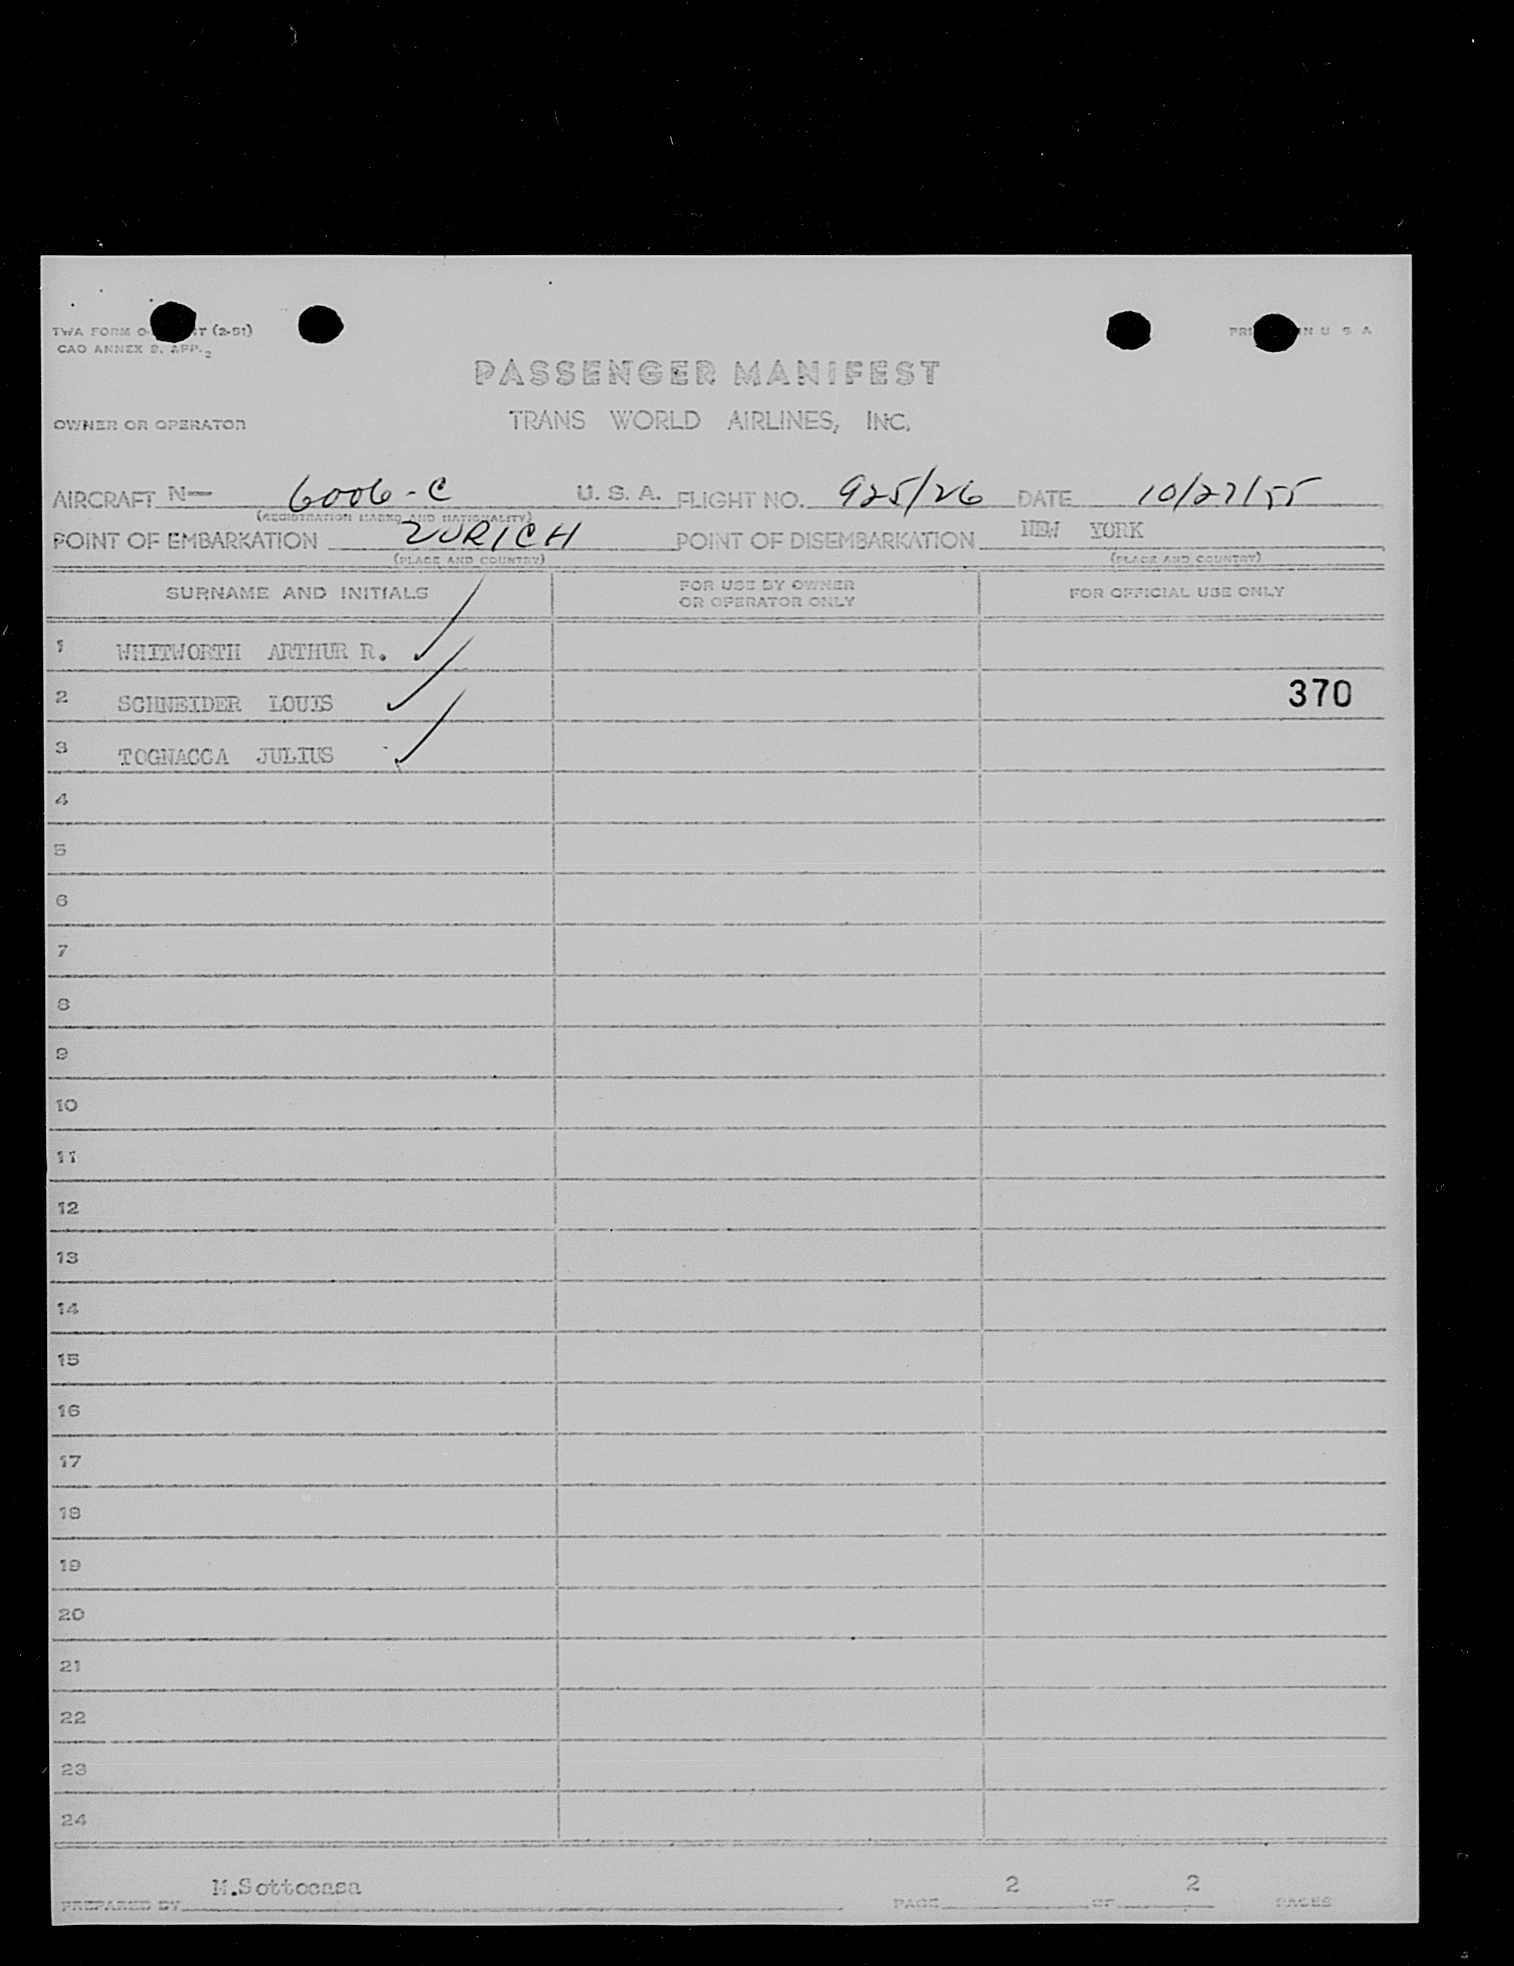 TWA FORM O- T (2-51)
PRI IN U. S. A
CAO ANNEX 9, APP. 2
PASSENGER MANIFEST
OWNER OR OPERATOR TRANS WORLD AIRLINES, INC.
AIRCRAFT N— 6006-C U. S. A. FLIGHT NO. 925/26 DATE 10/27/55
(REGISTRATION MARKS AND NATIONALITY)
POINT OF EMBARKATION ZURICH POINT OF DISEMBARKATION NEW YORK
(PLACE AND COUNTRY) (PLACE AND COUNTRY)
SURNAME AND INITIALS FOR USE BY OWNER OR OPERATOR ONLY FOR OFFICIAL USE ONLY
1 WHITWORTH ARTHUR R.
2 SCHNEIDER LOUIS 370
3 TOGNACCA JULIUS
4
5
6
7
8
9
10
11
12
13
14
15
16
17
18
19
20
21
22
23
24
PREPARED BY M.Sottocasa PAGE 2 OF 2 PAGES